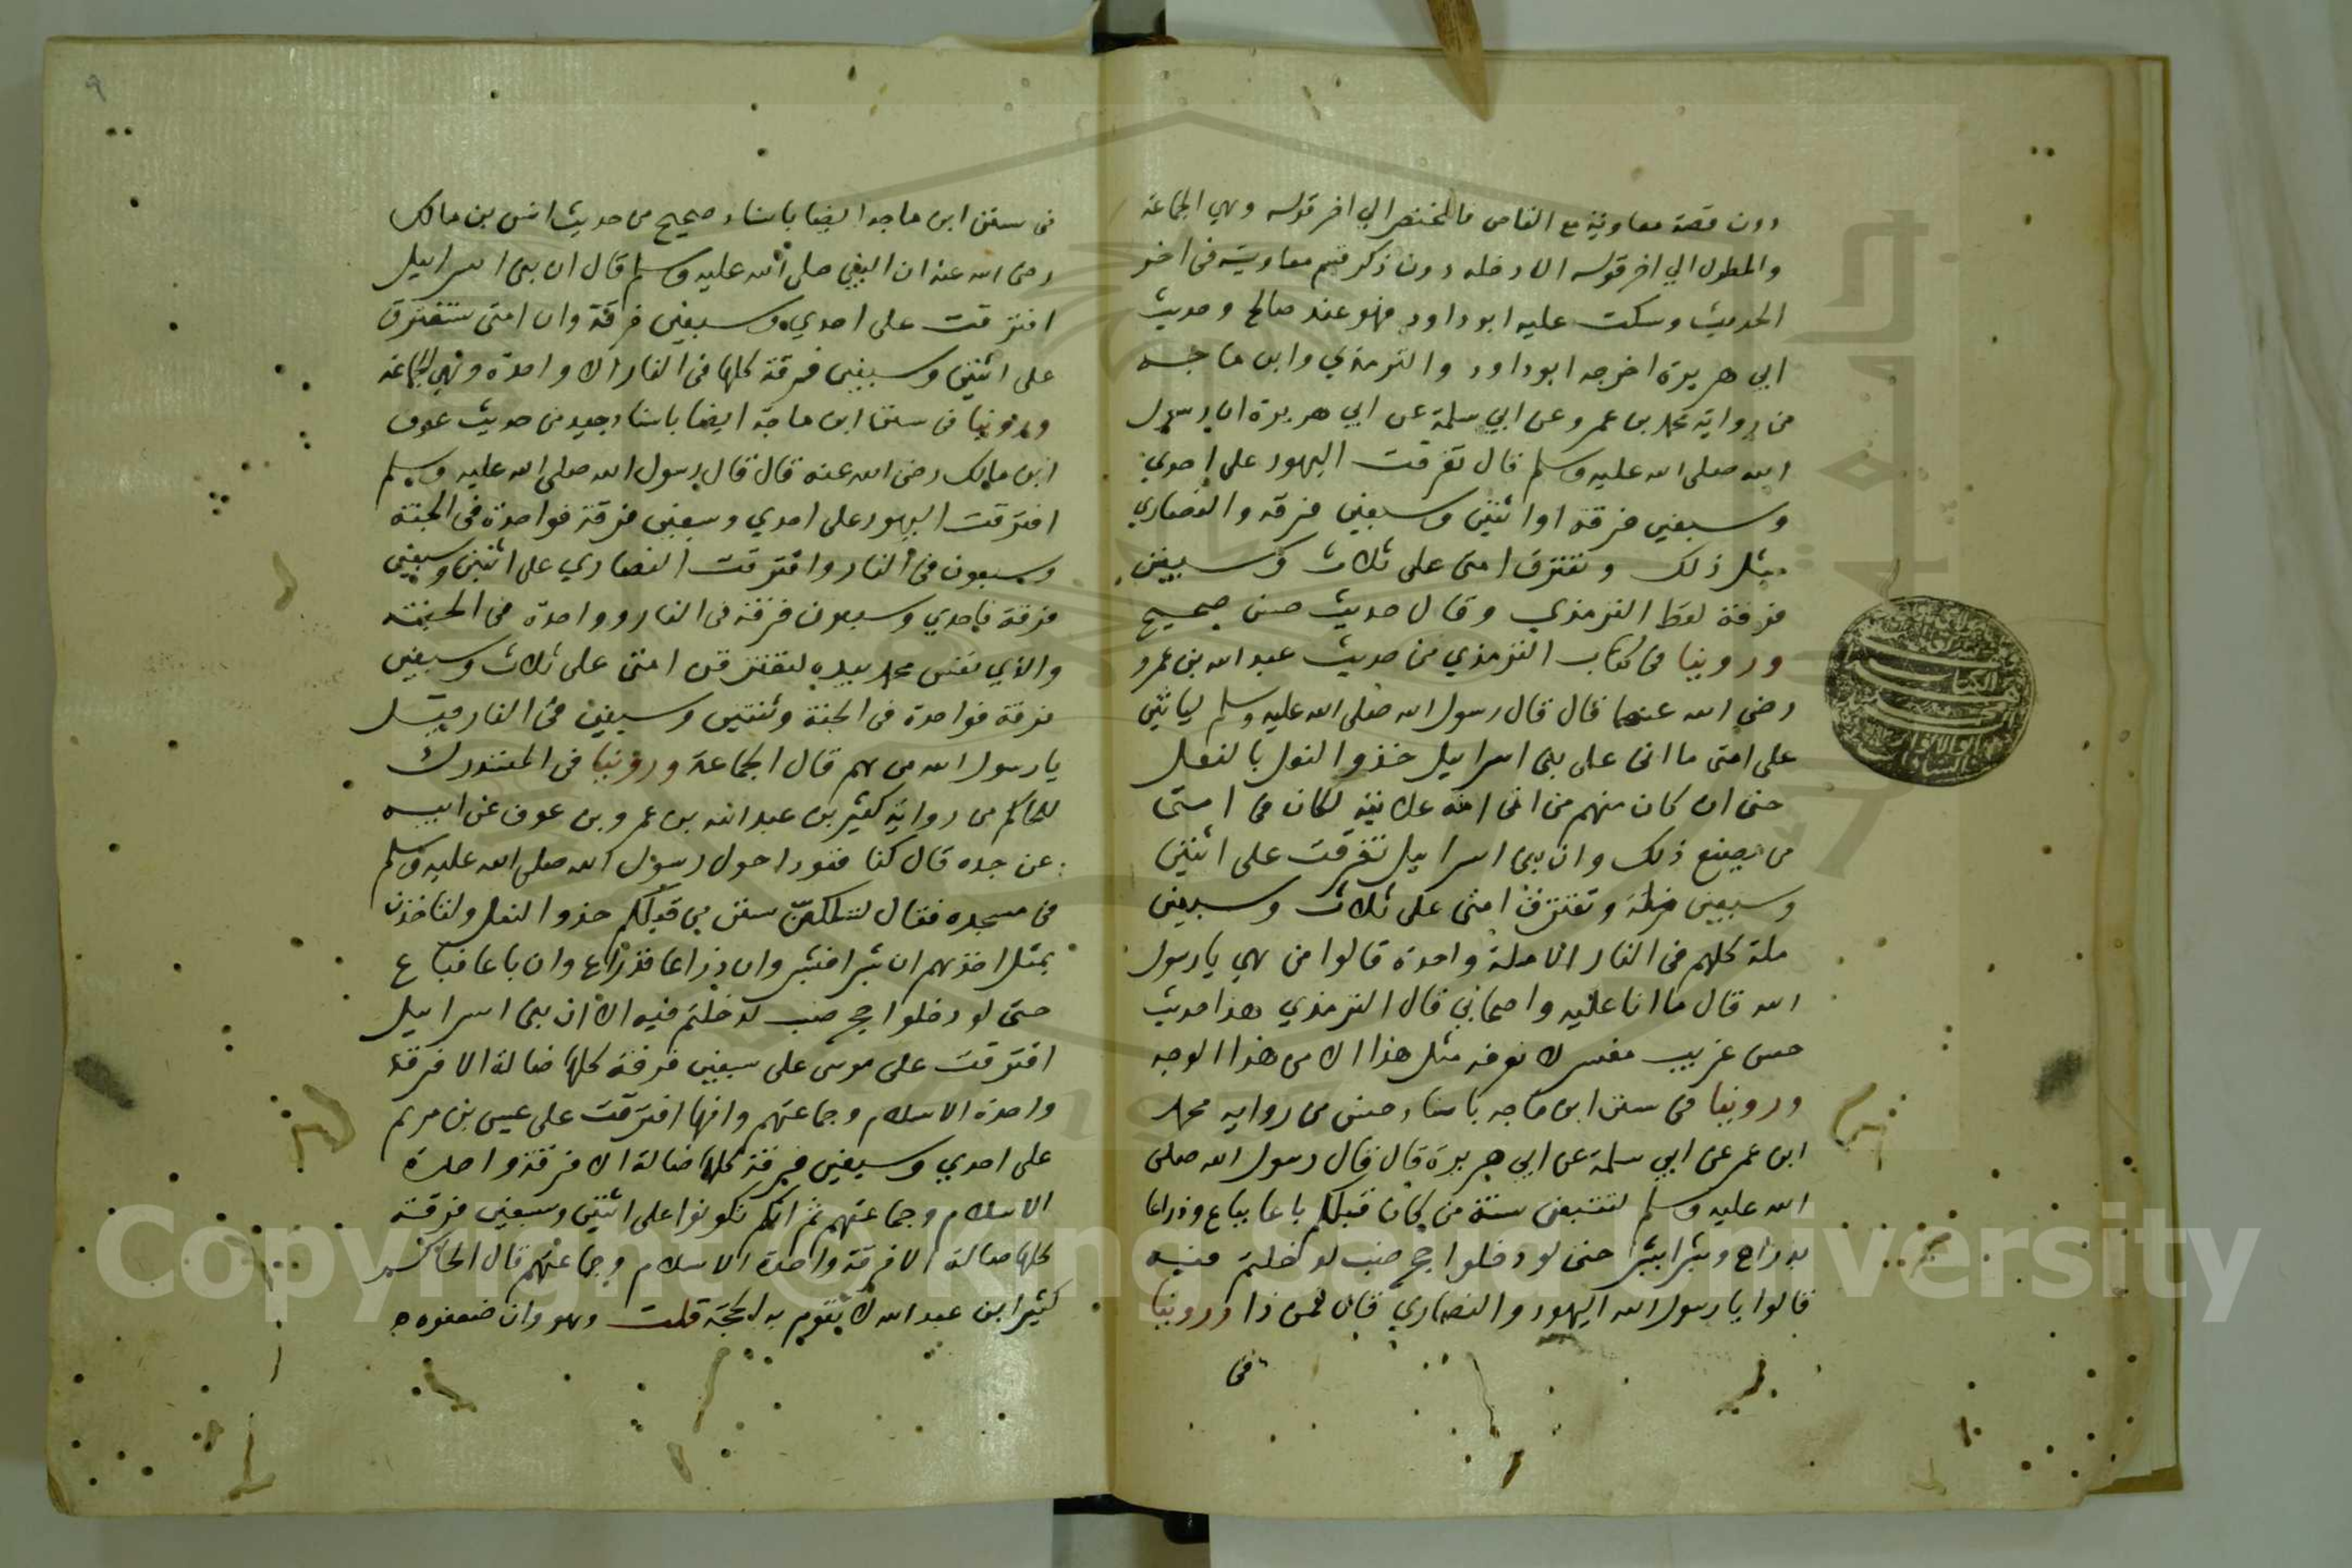 دون قصة معاوية مع القاص فالمختصر الي اخر قوله وهي الجماعة
والمطول الي اخر قوله الا دخله دون ذكر قسم معاوية في اخر
الحديث وسكت عليه ابو داود فهو عنده صالح وحديث
ابي هريرة اخرجه ابو داود والترمذي وابن ماجه
من رواية محمد بن عمرو عن ابي سلمة عن ابي هريرة ان رسول
الله صلى الله عليه وسلم قال تفرقت اليهود على احدي
وسبعين فرقة او اثنتين وسبعين فرقه والنصاري
مثل ذلك وتفترق امتى على ثلاث وسبعين
فرقة لفظ الترمذي وقال حديث حسن صحيح
وروينا في كتاب الترمذي من حديث عبد الله بن عمرو
رضي الله عنهما قال قال رسول الله صلى الله عليه وسلم لياتين
على امتى ما اتى على بنى اسرائيل حذو النعل بالنعل
حتى ان كان منهم من اتى امه علانية لكان في امتى
من يصنع ذلك وان بنى اسرائيل تفرقت على اثنتين
وسبعين ملة وتفترق امتى على ثلاث وسبعين
ملة كلهم في النار الا ملة واحدة قالوا من هي يا رسول
الله قال ما انا عليه واصحابي قال الترمذي هذا حديث
حسن غريب مفسر لا نعرفه مثل هذا الا من هذا الوجه
وروينا في سنن ابن ماجه باسناد حسن من رواية محمد
ابن عمر عن ابي سلمة عن ابي هريرة قال قال رسول الله صلى
الله عليه وسلم لتتبعن سنة من كان قبلكم باعا بباع وذراعا
بذراع وشبرا بشبر حتى لو دخلوا جحر ضب لدخلتم فيه
قالوا يا رسول الله اليهود والنصاري قال فمن ذا وروينا
في
٩
في سنن ابن ماجه ايضا باسناد صحيح من حديث انس بن مالك
رضى الله عنه ان النبي صلى الله عليه وسلم قال ان بنى اسرائيل
افترقت على احدي وسبعين فرقة وان امتى ستفترق
على اثنتين وسبعين فرقة كلها في النار الا واحدة وهي الجماعة
وروينا في سنن ابن ماجة ايضا باسناد جيد من حديث عوف
ابن مالك رضى الله عنه قال قال رسول الله صلى الله عليه وسلم
افترقت اليهود على احدي وسبعين فرقة فواحدة في الجنة
وسبعون في النار وافترقت النصاري على اثنتين وسبعين
فرقة فاحدي وسبعون فرقة في النار وواحدة في الجنة
والذي نفس محمد بيده لتفترقن امتى على ثلاث وسبعين
فرقة فواحدة في الجنة وثنتين وسبعين في النار قيل
يا رسول الله من هم قال الجماعة وروينا في المستدرك
للحاكم من رواية كثير بن عبد الله بن عمرو بن عوف عن ابيه
عن جده قال كنا قعودا حول رسول الله صلى الله عليه وسلم
في مسجده فقال لتسلكن سنن من قبلكم حذو النعل ولتاخذن
بمثل اخذهم ان شبرا فشبر وان ذراعا فذراع وان باعا فباع
حتى لو دخلوا جحر ضب لدخلتم فيه الا ان بنى اسرائيل
افترقت على موسى على سبعين فرقة كلها ضالة الا فرقة
واحدة الاسلام وجماعتهم وانها افترقت على عيسى بن مريم
على احدي وسبعين فرقة كلها ضالة الا فرقة واحدة
الاسلام وجماعتهم ثم انكم تكونوا على اثنتين وسبعين فرقة
كلها ضالة الا فرقة واحدة الاسلام وجماعتهم قال الحاكم
كثير ابن عبد الله لا تقوم به الحجة قلت وهو وان ضعفوه
Copyright © King Saud University